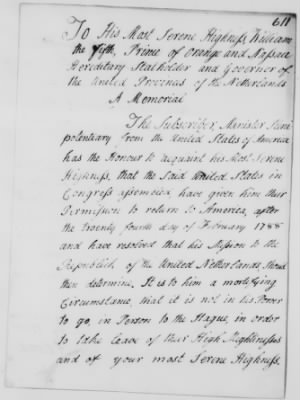 611
To His Most Serene Highness, William
the Fifth, Prince of Orange and Nassau
Hereditary Stalholder and Governor of
the United Provinces of the Netherlands
A Memorial
The Subscriber, Minister Pleni
potentiary from the United States of America
has the Honour to acquaint his Most Serene
Highness, that the Said United States in
Congress assembled, have given him their
Permission to return to America, after
the twenty fourth day of February 1788
and have resolved that his Mission to the
Republick of the United Netherlands, Should
then determine. It is to him a mortifying
Circumstance, that it is not in his Power
to go, in Person to the Hague, in order
to take leave of their High Mightinesses
and of your most Serene Highness.